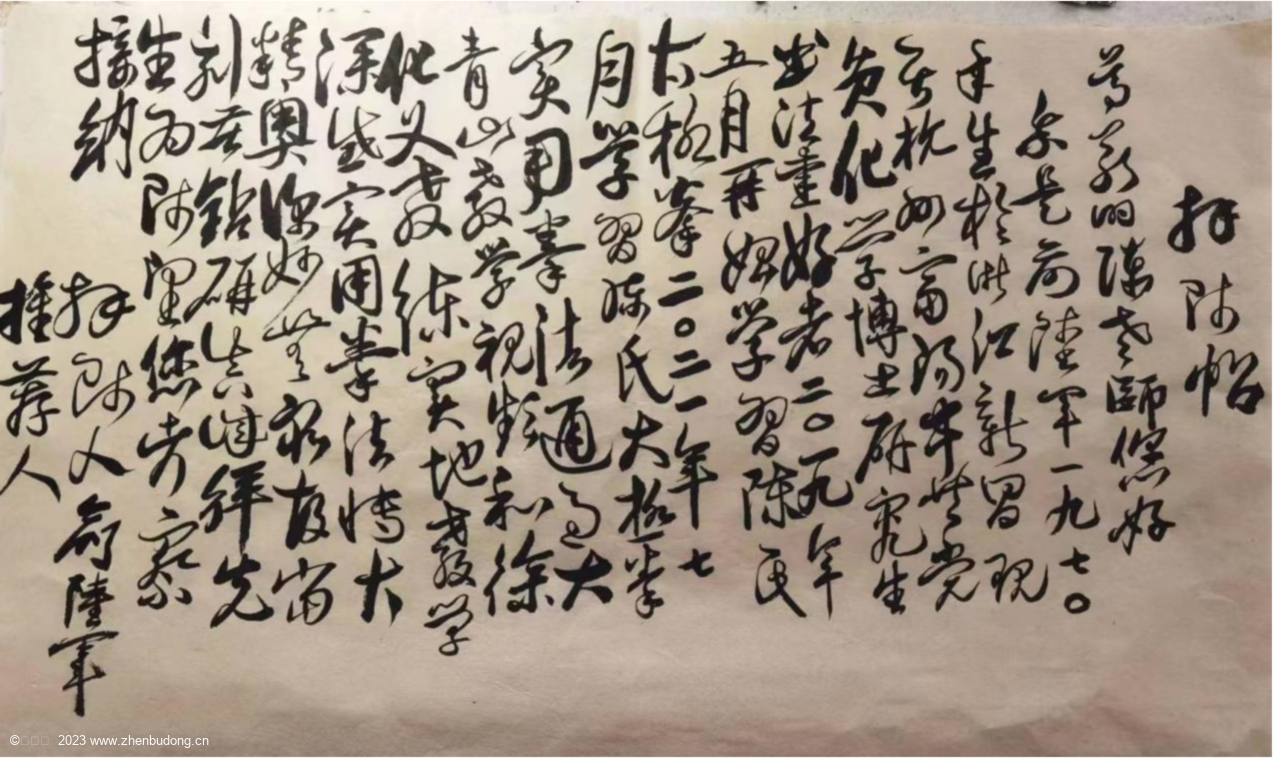 拜师帖
尊敬的陈老师您好
余是俞陆军一九七〇
年生於浙江新昌现
居杭州富阳中共党
员化学博士研究生
书法爱好者二〇一九年
五月开始学习陈氏
太极拳二〇二一年七
月学习陈氏太极拳
实用拳法通过大
青山教学视频和徐
化义教练实地教学
深感实用拳法博大
精奥微妙无穷故当
刻苦钻研真诚拜先
生为师望您考察
接纳
拜师人俞陆军
推荐人
© 2023 www.zhenbudong.cn